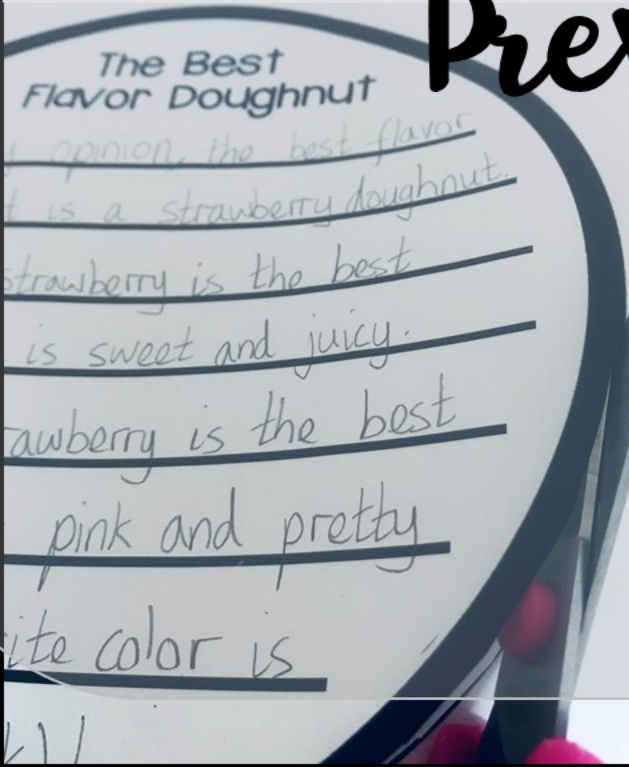 Prev
The Best
Flavor Doughnut
opinion, the best flavor
t is a strawberry doughnut.
strawberry is the best
is sweet and juicy.
rawberry is the best
pink and pretty
ite color is